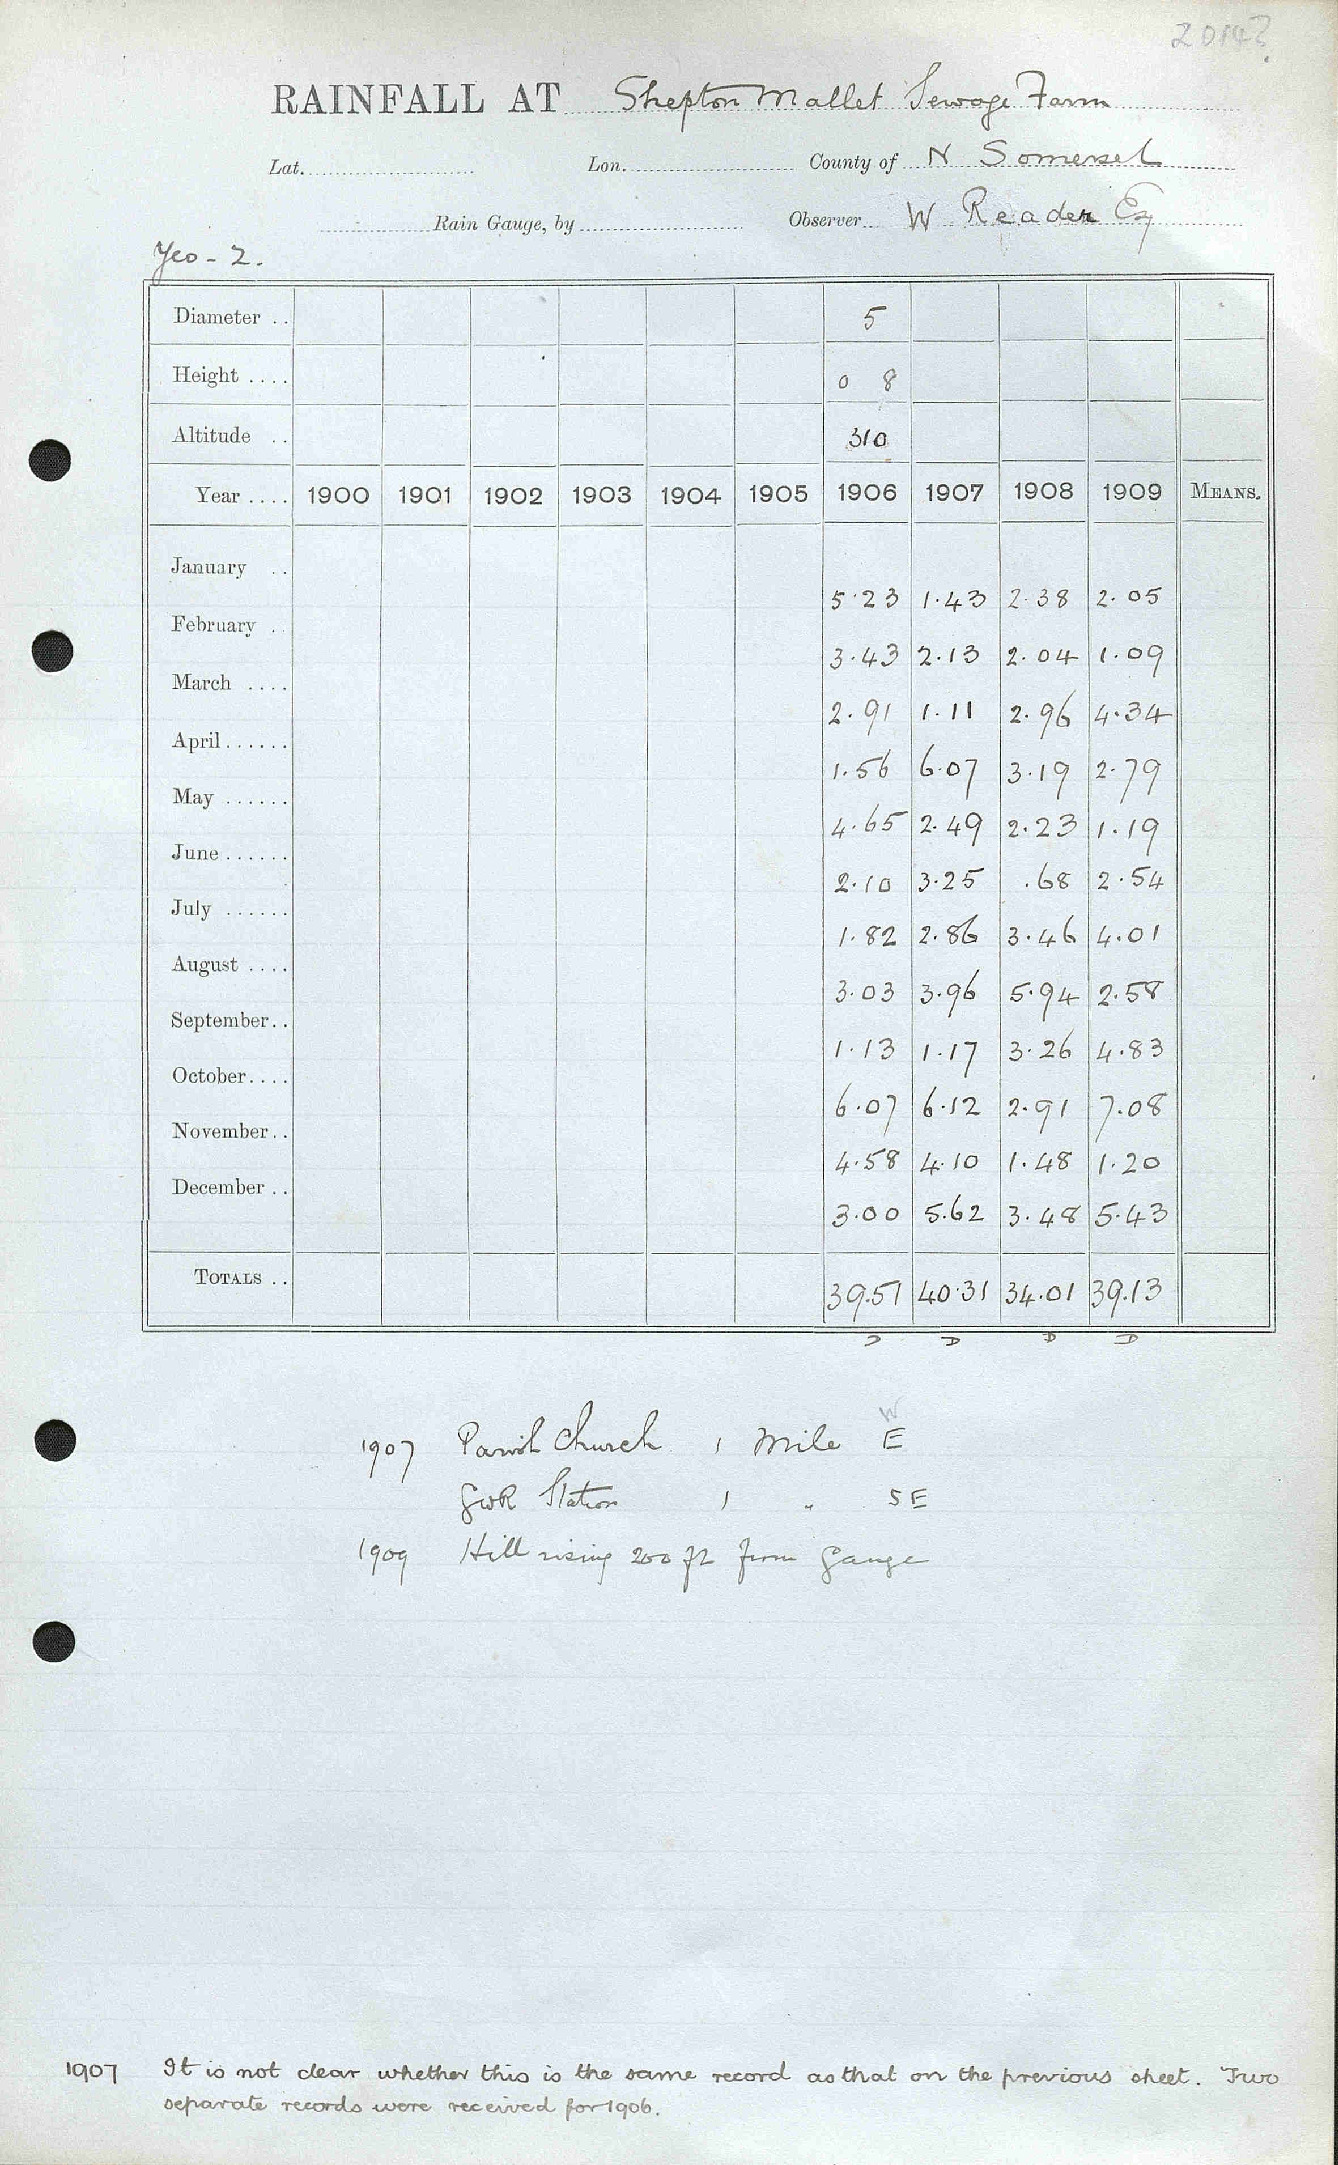 20142
RAINFALL AT Shepton Mallet Sewage Farm
Lat. Lon. County of N Somerset
Rain Gauge, by Observer W Reader Esq
Yeo - 2.
Diameter .. 5
Height .... 0 8
Altitude .. 310
Year .... 1900 1901 1902 1903 1904 1905 1906 1907 1908 1909 MEANS.
January .. 5.23 1.43 2.38 2.05
February .. 3.43 2.13 2.04 1.09
March .... 2.91 1.11 2.96 4.34
April ...... 1.56 6.07 3.19 2.79
May ...... 4.65 2.49 2.23 1.19
June ...... 2.10 3.25 .68 2.54
July ...... 1.82 2.86 3.46 4.01
August .... 3.03 3.96 5.94 2.58
September.. 1.13 1.17 3.26 4.83
October.... 6.07 6.12 2.91 7.08
November.. 4.58 4.10 1.48 1.20
December .. 3.00 5.62 3.48 5.43
TOTALS .. 39.51 40.31 34.01 39.13
D D D D
W
1907 Parish Church 1 Mile E
GWR Station 1 " SE
1909 Hill rising 200 ft from gauge
1907 It is not clear whether this is the same record as that on the previous sheet. Two
separate records were received for 1906.